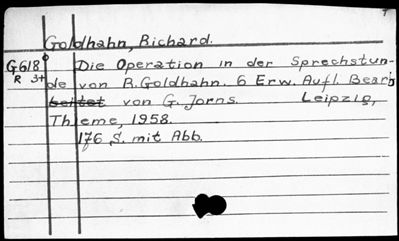 Goldhahn, Richard.
G618°
R 3+
Die Operation in der Sprechstun-
de von R. Goldhahn. 6 Erw. Aufl. Bearb
beitet von G. Jorns. Leipzig,
Thieme, 1958.
176 S. mit Abb.